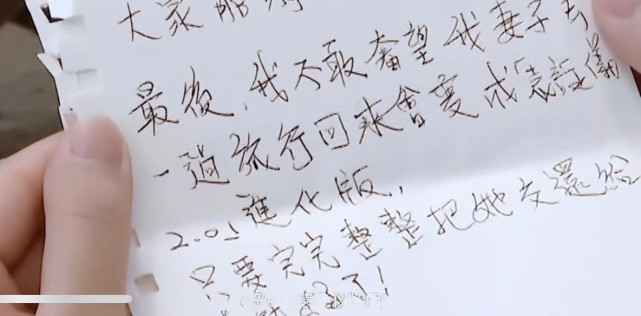 大家
最後,我不敢奢望我妻子去
一趟旅行回來會變成「袁詠儀
2.0」進化版,
只要完完整整把她交還給
好了!